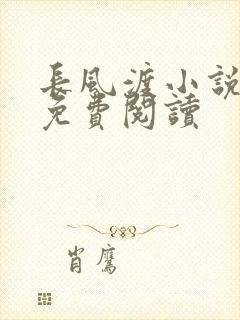 長風渡小說
免費閱讀
肖鷹